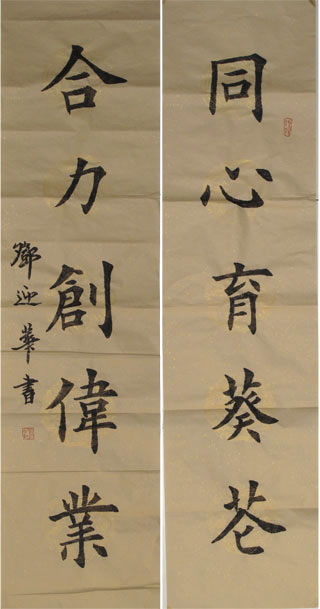 同心育葵花
合力創偉業
鄧迎華書